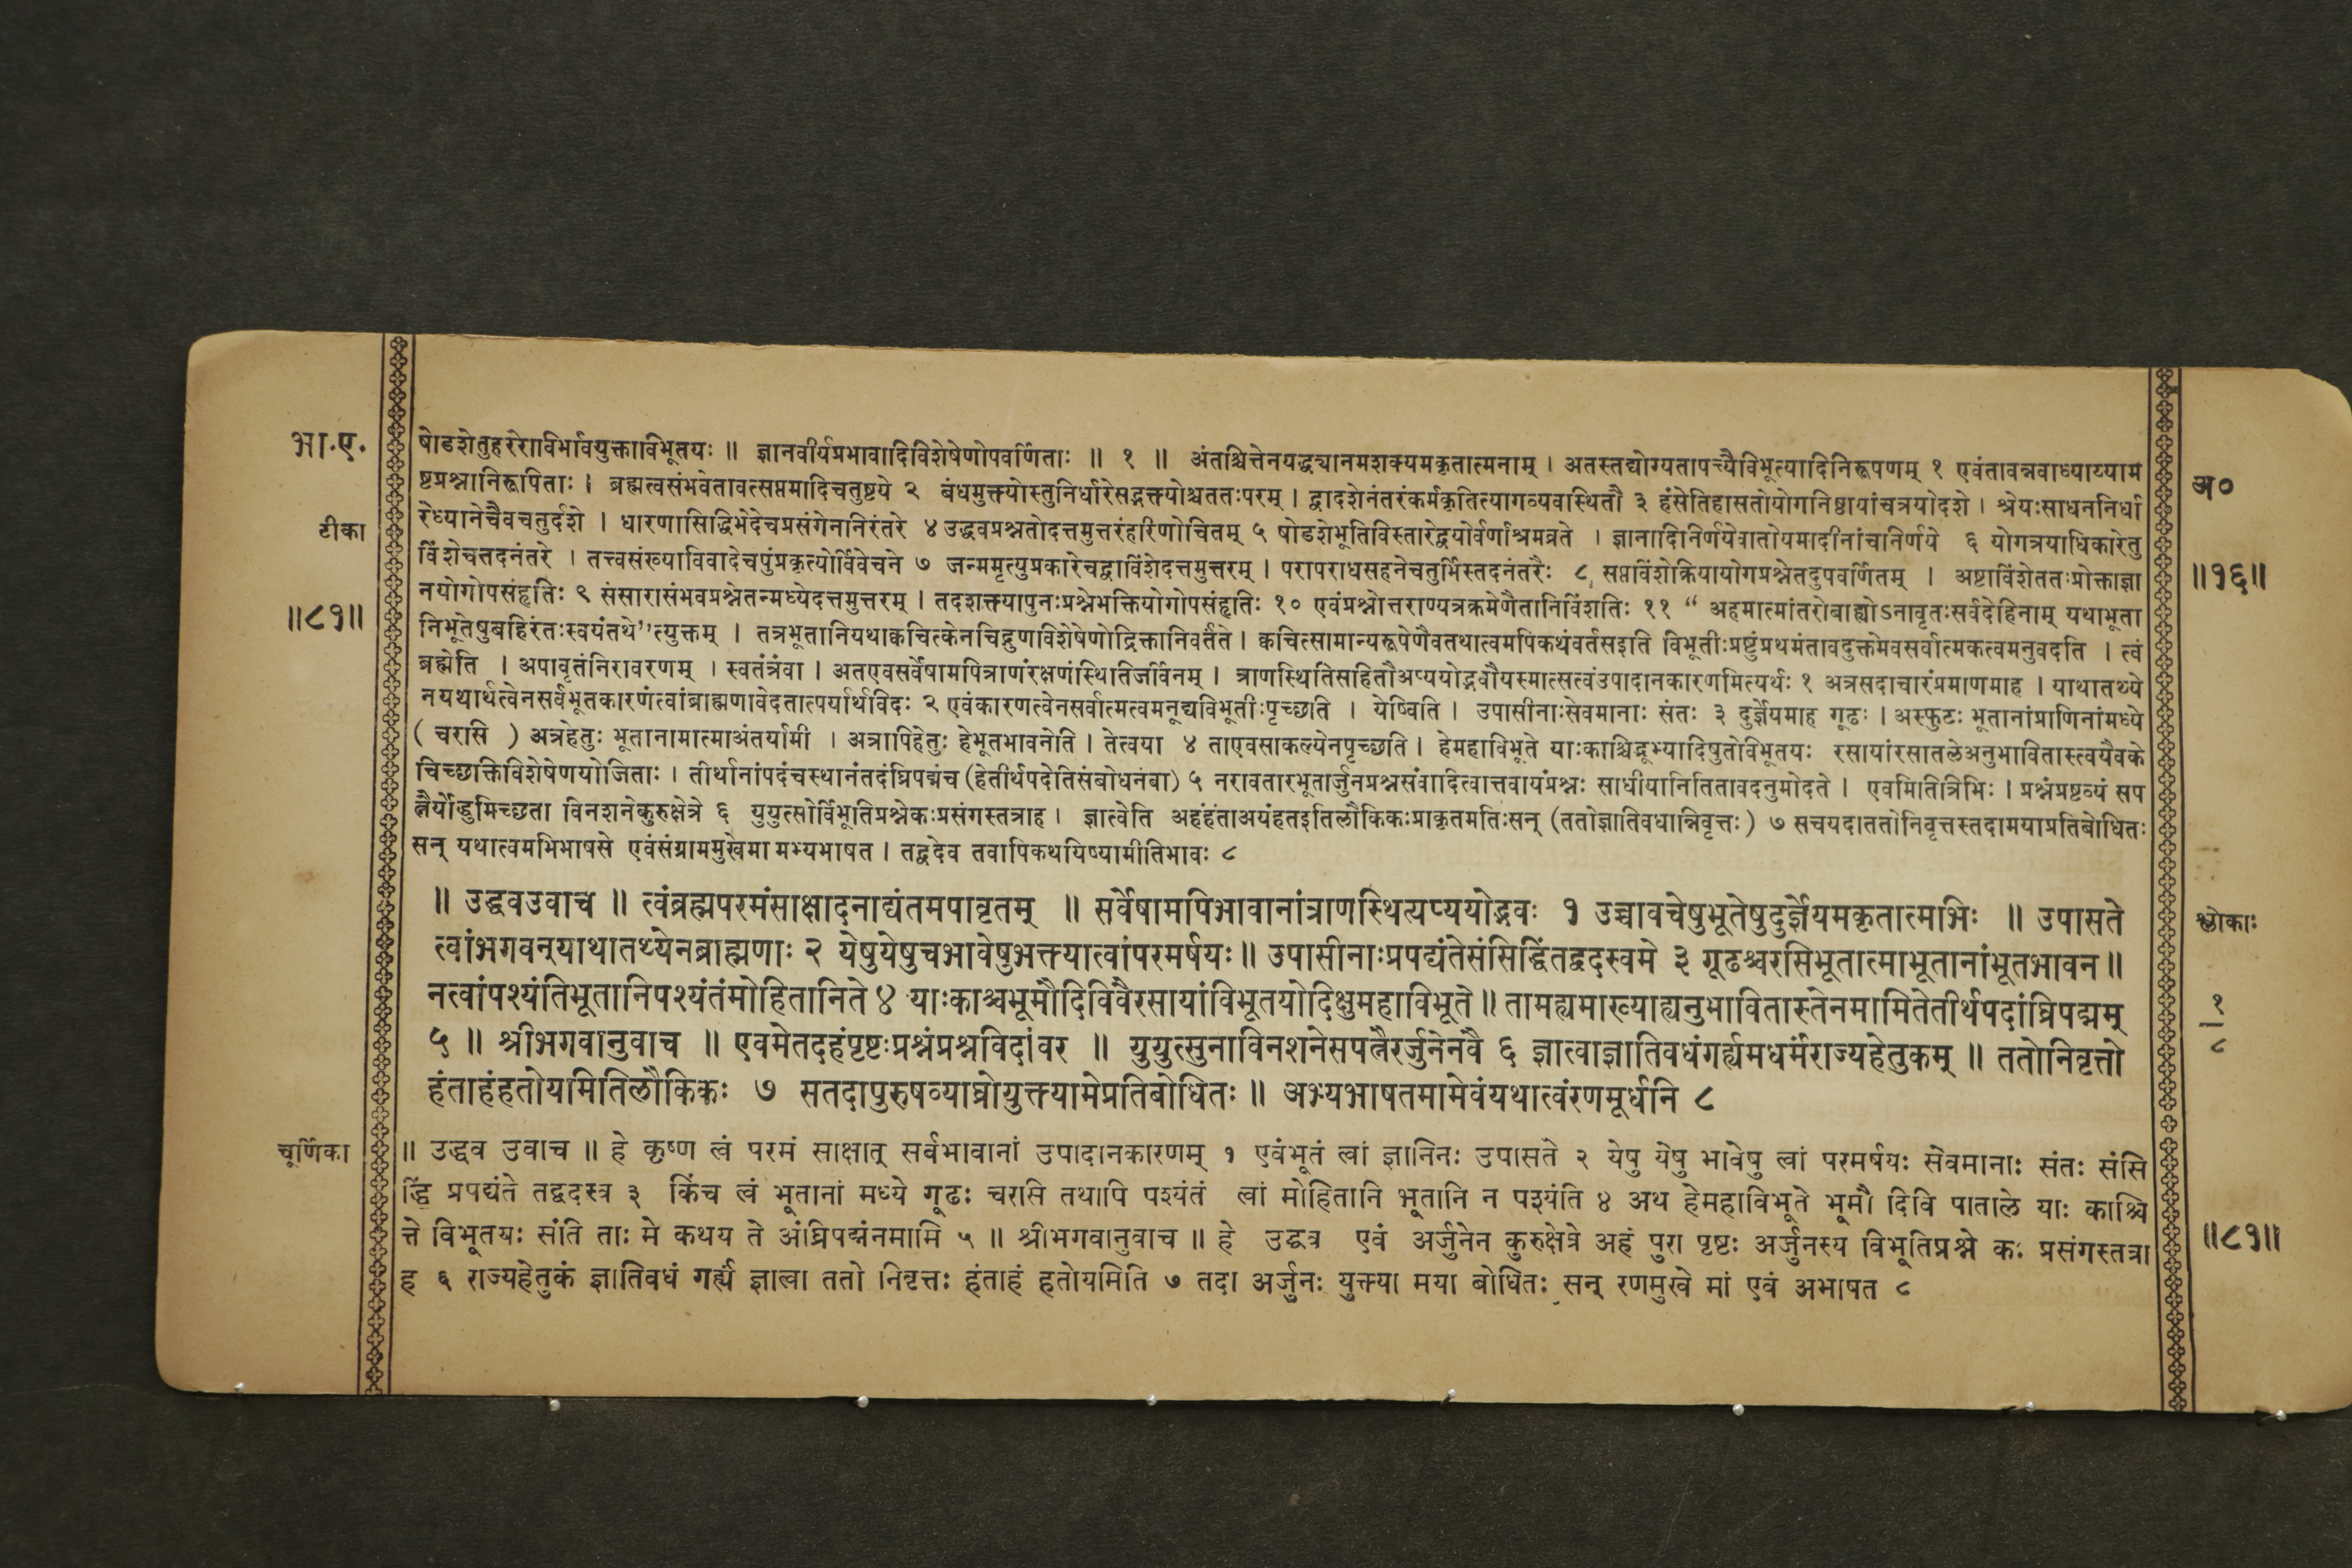 भा.ए.
टीका
॥८१॥
षोडशेतुहरेराविर्भावयुक्ताविभूतयः ॥ ज्ञानवीर्यप्रभावादिविशेषेणोपवर्णिताः ॥ १ ॥ अंतश्चित्तेनयद्ध्यानमशक्यमकृतात्मनाम् । अतस्तद्योग्यतापत्त्यैविभूत्यादिनिरूपणम् १ एवंतावन्नवाध्याय्याम
ष्टप्रश्नानिरूपिताः । ब्रह्मत्वसंभवेतावत्सप्तमादिचतुष्टये २ बंधमुक्त्योस्तुनिर्धारेसद्भक्त्योश्चततःपरम् । द्वादशेनंतरंकर्मकृतित्यागव्यवस्थितौ ३ हंसेतिहासतोयोगनिष्ठायांचत्रयोदशे । श्रेयःसाधननिर्धा
रेध्यानेचैवचतुर्दशे । धारणासिद्धिभेदेचप्रसंगेनानिरंतरे ४ उद्धवप्रश्नतोदत्तमुत्तरंहरिणोचितम् ५ षोडशेभूतिविस्तारेद्वयोर्वर्णाश्रमव्रते । ज्ञानादिनिर्णयेवातोयमादीनांचनिर्णये ६ योगत्रयाधिकारेतु
विंशेचतदनंतरे । तत्त्वसंख्याविवादेचपुंप्रकृत्योर्विवेचने ७ जन्ममृत्युप्रकारेचद्वाविंशेदत्तमुत्तरम् । परापराधसहनेचतुर्भिस्तदनंतरैः ८ सप्तविंशेक्रियायोगप्रश्नेतदुपवर्णितम् । अष्टाविंशेततःप्रोक्ताज्ञा
नयोगोपसंहृतिः ९ संसारासंभवप्रश्नेतन्मध्येदत्तमुत्तरम् । तदशक्त्यापुनःप्रश्नेभक्तियोगोपसंहृतिः १० एवंप्रश्नोत्तराण्यत्रक्रमेणैतानिविंशतिः ११ “ अहमात्मांतरोबाह्योऽनावृतःसर्वदेहिनाम् यथाभूता
निभूतेषुबहिरंतःस्वयंतथे”त्युक्तम् । तत्रभूतानियथाक्वचित्केनचिद्गुणविशेषेणोद्रिक्तानिवर्तंते । क्वचित्सामान्यरूपेणैवतथात्वमपिकथंवर्तसइति विभूतीःप्रष्टुंप्रथमंतावदुक्तमेवसर्वात्मकत्वमनुवदति । त्वं
ब्रह्मेति । अपावृतंनिरावरणम् । स्वतंत्रंवा । अतएवसर्वेषामपित्राणंरक्षणंस्थितिर्जीवनम् । त्राणस्थितिसहितौअप्ययोद्भवौयस्मात्सत्वंउपादानकारणमित्यर्थः १ अत्रसदाचारंप्रमाणमाह । याथातथ्ये
नयथार्थत्वेनसर्वभूतकारणंत्वांब्राह्मणावेदतात्पर्यार्थविदः २ एवंकारणत्वेनसर्वात्मत्वमनूद्यविभूतीःपृच्छति । येष्विति । उपासीनाःसेवमानाः संतः ३ दुर्ज्ञेयमाह गूढः । अस्फुटः भूतानांप्राणिनांमध्ये
( चरासि ) अत्रहेतुः भूतानामात्माअंतर्यामी । अत्रापिहेतुः हेभूतभावनेति । तेत्वया ४ ताएवसाकल्येनपृच्छति । हेमहाविभूते याःकाश्चिद्भूम्यादिषुतेविभूतयः रसायांरसातलेअनुभावितास्त्वयैवके
चिच्छक्तिविशेषेणयोजिताः । तीर्थानांपदंचस्थानंतदंघ्रिपद्मंच (हेतीर्थपदेतिसंबोधनंवा) ५ नरावतारभूतार्जुनप्रश्नसंवादित्वात्तवायंप्रश्नः साधीयानितितावदनुमोदते । एवमितित्रिभिः । प्रश्नंप्रष्टव्यं सप
त्नैर्योद्धुमिच्छता विनशनेकुरुक्षेत्रे ६ युयुत्सोर्विभूतिप्रश्नेकःप्रसंगस्तत्राह । ज्ञात्वेति अहंहंताअयंहतइतिलौकिकःप्राकृतमतिःसन् (ततोज्ञातिवधान्निवृत्तः) ७ सचयदाततोनिवृत्तस्तदामयाप्रतिबोधितः
सन् यथात्वमभिभाषसे एवंसंग्राममुखेमा मभ्यभाषत । तद्वदेव तवापिकथयिष्यामीतिभावः ८
॥ उद्धवउवाच ॥ त्वंब्रह्मपरमंसाक्षादनाद्यंतमपावृतम् ॥ सर्वेषामपिभावानांत्राणस्थित्यप्ययोद्भवः १ उच्चावचेषुभूतेषुदुर्ज्ञेयमकृतात्मभिः ॥ उपासते
त्वांभगवन्याथातथ्येनब्राह्मणाः २ येषुयेषुचभावेषुभक्त्यात्वांपरमर्षयः॥ उपासीनाःप्रपद्यंतेसंसिद्धिंतद्वदस्वमे ३ गूढश्चरसिभूतात्माभूतानांभूतभावन॥
नत्वांपश्यंतिभूतानिपश्यंतंमोहितानिते ४ याःकाश्चभूमौदिविवैरसायांविभूतयोदिक्षुमहाविभूते॥ तामह्यमाख्याह्यनुभावितास्तेनमामितेतीर्थपदांघ्रिपद्मम्
५ ॥ श्रीभगवानुवाच ॥ एवमेतदहंपृष्टःप्रश्नंप्रश्नविदांवर ॥ युयुत्सुनाविनशनेसपत्नैरर्जुनेनवै ६ ज्ञात्वाज्ञातिवधंगर्ह्यमधर्मंराज्यहेतुकम् ॥ ततोनिवृत्तो
हंताहंहतोयमितिलौकिकः ७ सतदापुरुषव्याघ्रोयुक्त्यामेप्रतिबोधितः ॥ अभ्यभाषतमामेवंयथात्वंरणमूर्धनि ८
चूर्णिका
॥ उद्धव उवाच ॥ हे कृष्ण त्वं परमं साक्षात् सर्वभावानां उपादानकारणम् १ एवंभूतं त्वां ज्ञानिनः उपासते २ येषु येषु भावेषु त्वां परमर्षयः सेवमानाः संतः संसि
द्धिं प्रपद्यंते तद्वदस्व ३ किंच त्वं भूतानां मध्ये गूढः चरासि तथापि पश्यंतं त्वां मोहितानि भूतानि न पश्यंति ४ अथ हेमहाविभूते भूमौ दिवि पाताले याः काश्चि
त्ते विभूतयः संति ताः मे कथय ते अंघ्रिपद्मंनमामि ५ ॥ श्रीभगवानुवाच ॥ हे उद्धव एवं अर्जुनेन कुरुक्षेत्रे अहं पुरा पृष्टः अर्जुनस्य विभूतिप्रश्ने कः प्रसंगस्तत्रा
ह ६ राज्यहेतुकं ज्ञातिवधं गर्ह्यं ज्ञात्वा ततो निवृत्तः हंताहं हतोयमिति ७ तदा अर्जुनः युक्त्या मया बोधितः सन् रणमुखे मां एवं अभाषत ८
अ०
॥१६॥
श्लोकाः
१
८
॥८१॥